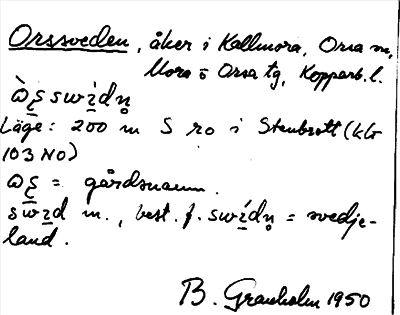 Orssveden, åker i Kallmora, Orsa sn,
Mora o Orsa tg, Kopparb. l.
Läge: 200 m S ro i Stenbrott (kbr
103 NO)
= gårdsnamn.
m., best. f. = svedje-
land.
B. Granholm 1950